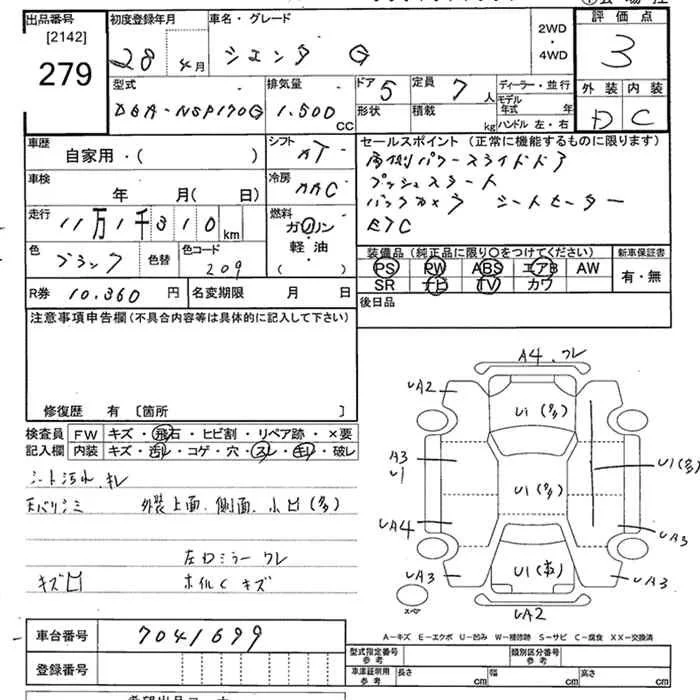 出品番号 [2142] 279
初度登録年月 28 4月
車名・グレード シエンタ G
2WD・4WD
評価点 3
外装 D 内装 C
型式 DBA-NSP170G
排気量 1.500 CC
ドア 5 定員 7人
形状 積載 kg
ディーラー・並行
モデル年式 年
ハンドル 左・右
車歴 自家用・( )
シフト AT
車検 年 月( 日)
冷房 AAC
走行 11万1千310km
燃料 ガソリン 軽油 ( )
色 ブラック 色替 色コード 209
セールスポイント (正常に機能するものに限ります)
両側パワースライドドア
プッシュスタート
バックカメラ シートヒーター
ETC
装備品 (純正品に限り○をつけてください)
PS PW ABS エアB AW
SR ナビ TV カワ
新車保証書 有・無
後日品
R券 10.360 円 名変期限 月 日
注意事項申告欄 (不具合内容等は具体的に記入して下さい)
修復歴 有 [箇所 ]
検査員記入欄
FW キズ・飛石・ヒビ割・リペア跡・×要
内装 キズ・汚レ・コゲ・穴・スレ・キレ・破レ
シート汚れ.キレ
天バリシミ 外装上面.側面.小凹(多)
左右ミラーワレ
キズ凹 ホイルCキズ
A4.ワレ
UA2
U1(多)
A3
U1
U1(多)
U1(多)
UA4
UA3
UA3
U1(多)
UA3
スペア
UA2
A-キズ E-エクボ U-凹み W-補修跡 S-サビ C-腐食 XX-交換済
車台番号 7041699
登録番号
型式指定番号 参考
類別区分番号 参考
車庫証明用 参考 長さ cm 幅 cm 高さ cm